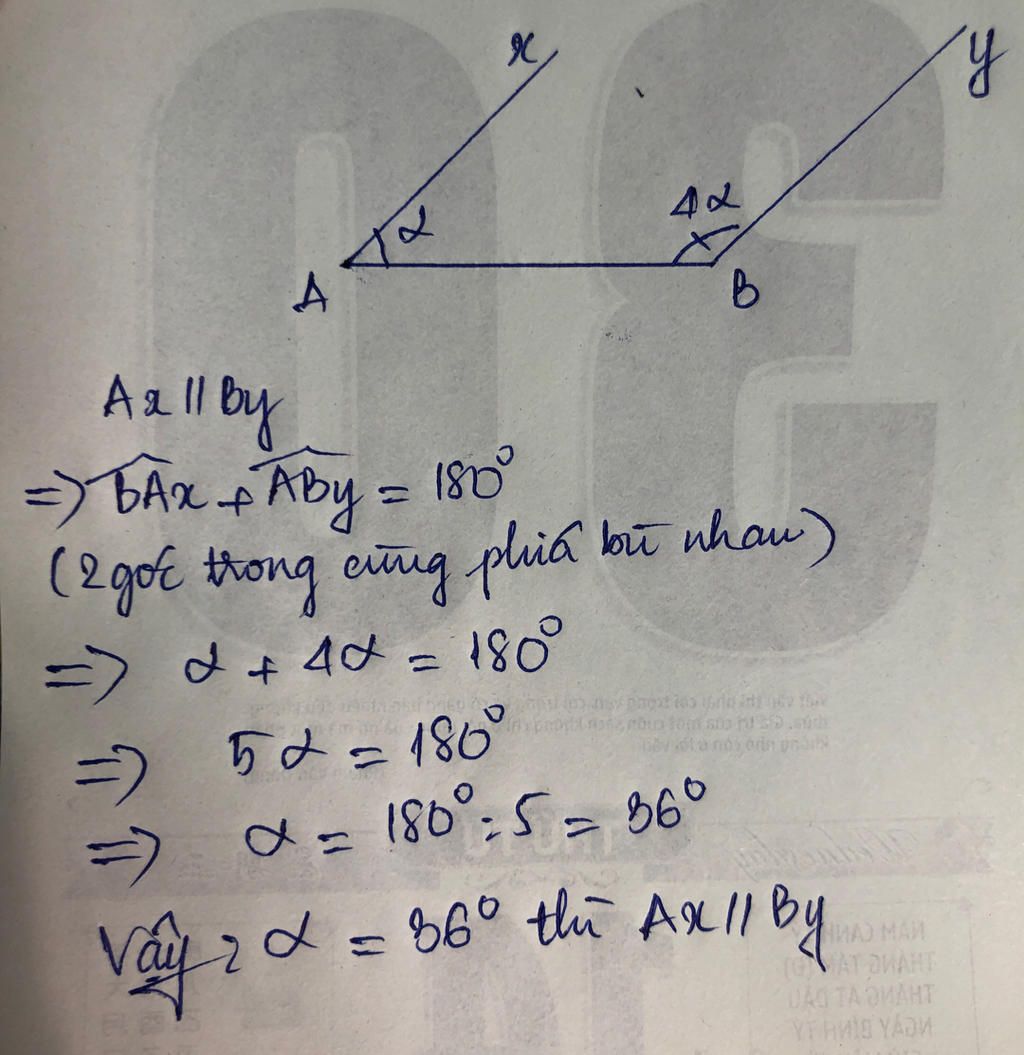 x
y
α
4α
A
B
Ax // By
=> BAx + ABy = 180°
(2 góc trong cùng phía bù nhau)
=> α + 4α = 180°
=> 5α = 180°
=> α = 180° : 5 = 36°
Vậy α = 36° thì Ax // By